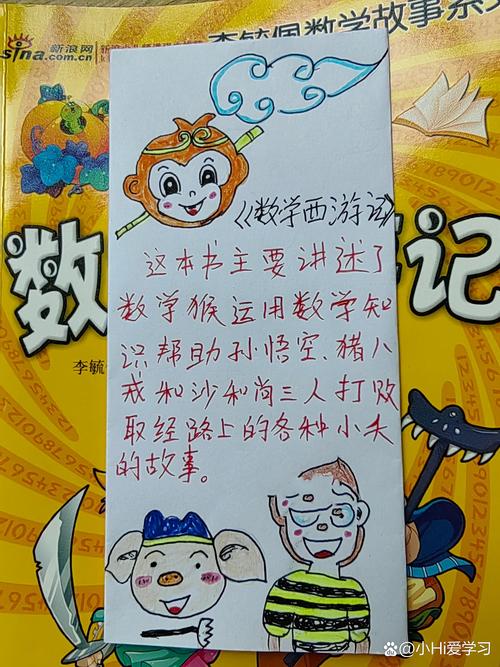 李毓佩数学故事系
新浪网
sina.com.cn
《数学西游记》
这本书主要讲述了
数学猴运用数学知
识帮助孙悟空、猪八
戒和沙和尚三人打败
取经路上的各种小夭
的故事。
数
记
李毓
小Hi爱学习